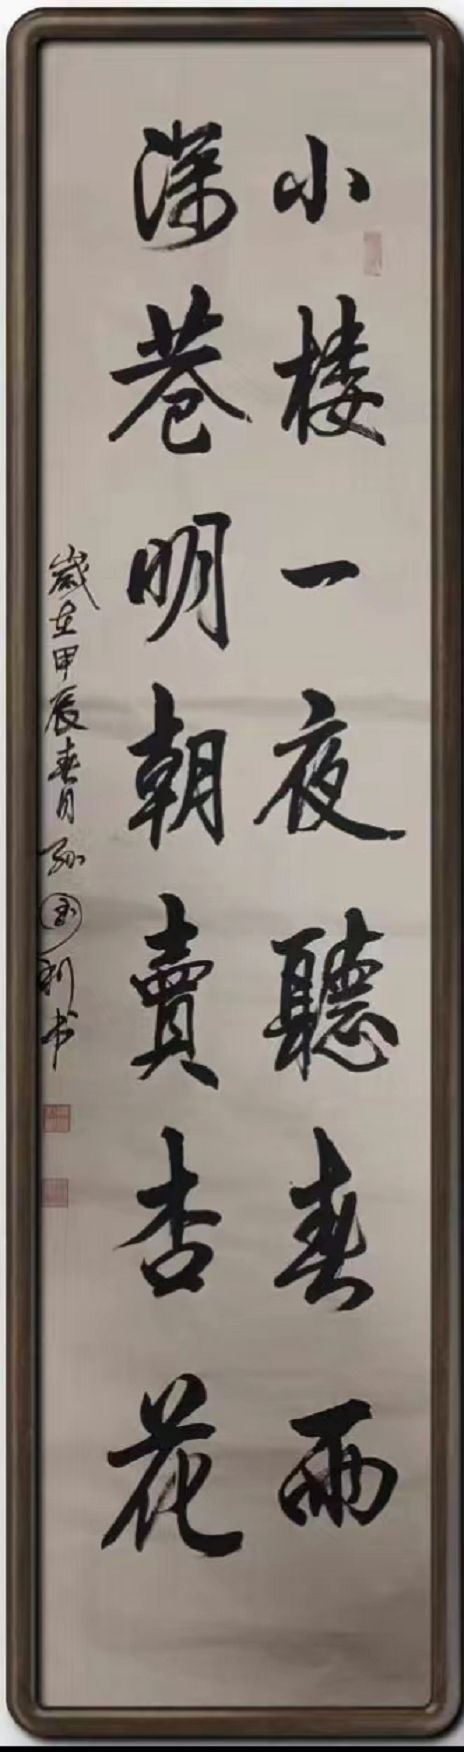 小楼一夜聽春雨
深巷明朝賣杏花
歲在甲辰春月孙国利书